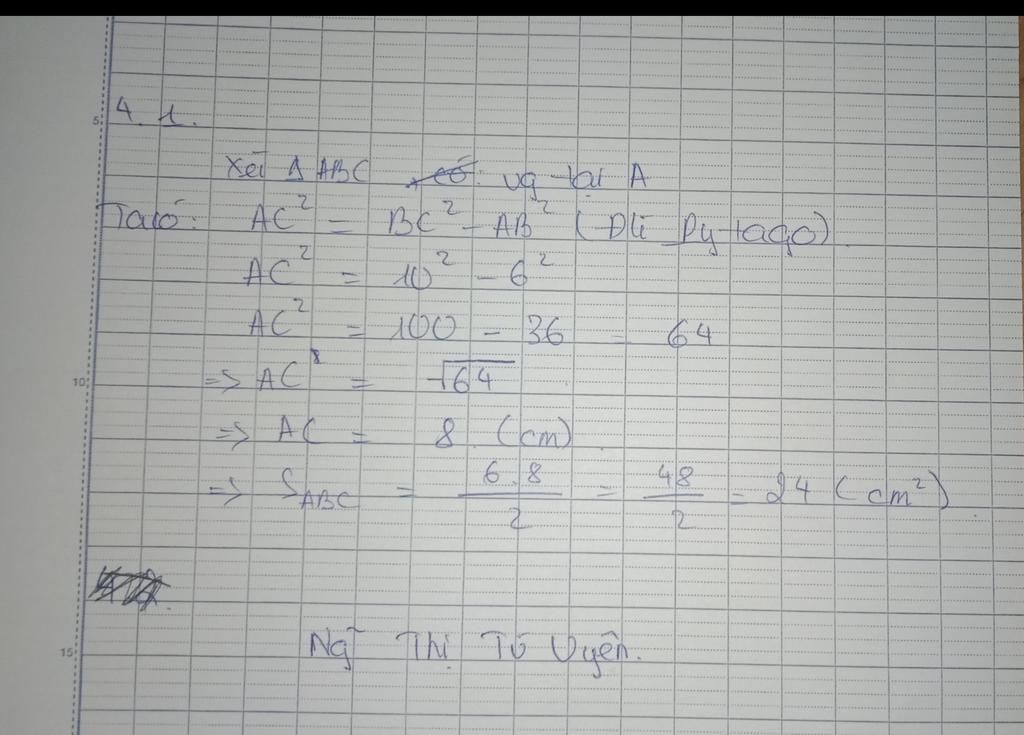 4.1.
Xét Δ ABC vg tại A
Ta có: AC² = BC² - AB² (Đlí Pytago)
AC² = 10² - 6²
AC² = 100 - 36 = 64
=> AC = √64
=> AC = 8 (cm)
=> S_ABC = 6.8/2 = 48/2 = 24 (cm²)
Ng~ Thị Tú Uyên.
5
10
15